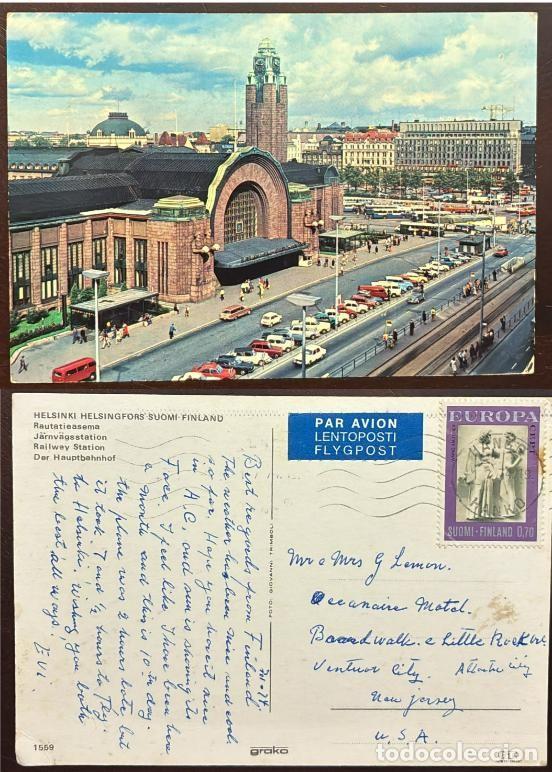 HELSINKI HELSINGFORS SUOMI-FINLAND
Rautatieasema
Järnvägsstation
Railway Station
Der Hauptbahnhof
PAR AVION
LENTOPOSTI
FLYGPOST
EUROPA
CEPT
SUOMI-FINLAND 0,70
Best regards from Finland
The weather has been nice and cool
so far. Hope you have it nice
in A.C. and sun is showing its
face. I feel like I have been here
a month and this is 10th day.
the plane was 2 hours late, but
it took 7 and ½ hours to fly
to Helsinki. Wishing you both
the best all ways.
Evi.
FOTO: GIOVANNI TRIMBOLI
Mr & Mrs G Lemon.
Oceanaire Motel.
Boardwalk. & Little Rock
Ventnor City. Atlantic City
New Jersey
U.S.A.
1559
grako
todocoleccion
todocoleccion.net